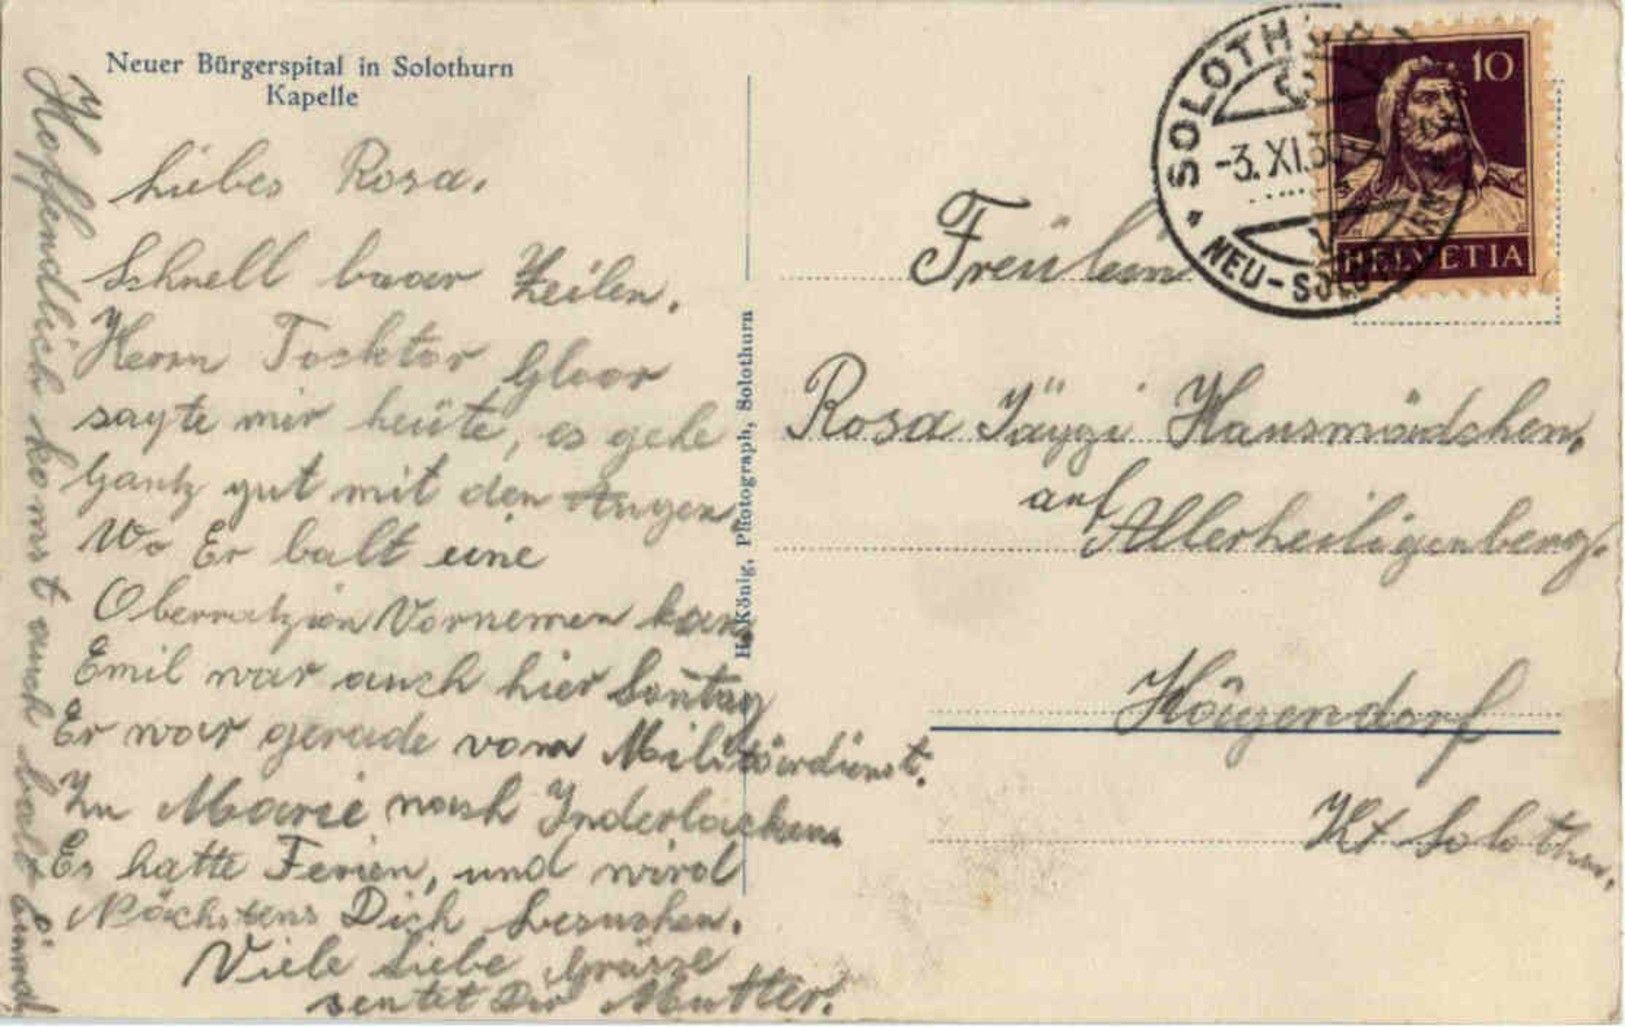 Neuer Bürgerspital in Solothurn
Kapelle
Liebes Rosa.
Schnell baar Zeilen.
Herrn Tocktor Gloor
sagte mir heüte, es gehe
Gantz gut mit den Augen
Wo Er balt eine
Oberratzion Vornemen kan
Emil war auch hier Sontag
Er war gerade vom Militärdienst.
Zu Marie nach Inderlacken
Es hatte Ferien, und wird
Nächstens Dich besuchen.
Viele Liebe Grüsse
sentet Dir Mutter.
Hoffendlich komst auch balt einmal
H. König, Photograph, Solothurn
SOLOTHURN
-3. XI. 30
NEU-SOLOTHURN
10
HELVETIA
Freülein
Rosa Jäggi Hausmädchen,
auf Allerheiligenberg.
Hägendorf
Kt Solothurn.